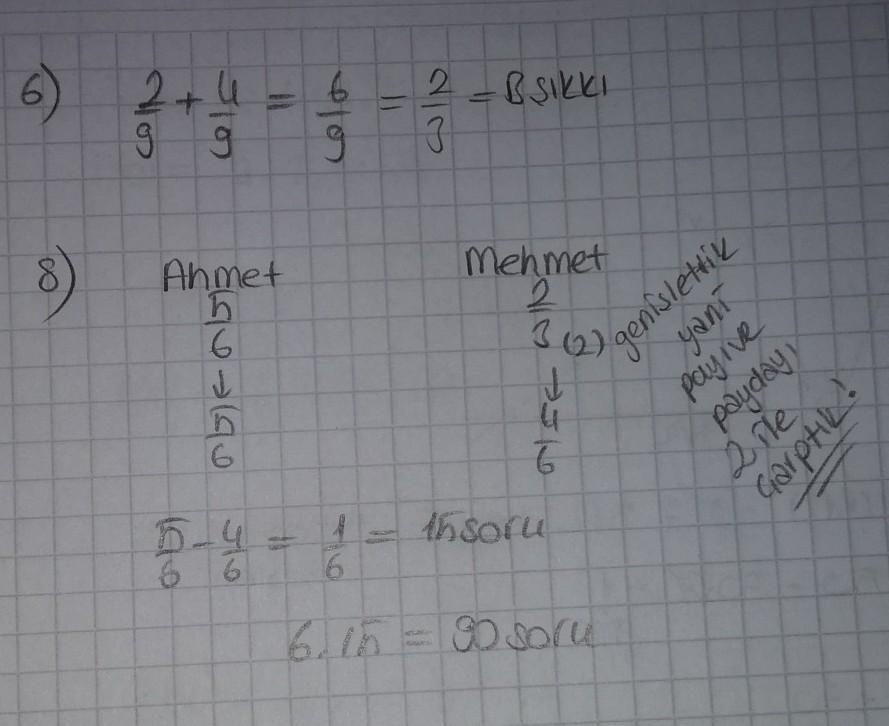 6) 2/9 + 4/9 = 6/9 = 2/3 = B şıkkı
8) Ahmet Mehmet
5/6 2/3 (2) genişlettik
yani
payı ve
paydayı
2 ile
çarptık!
↓ ↓
5/6 4/6
5/6 - 4/6 = 1/6 = 15 soru
6.15 = 90 soru